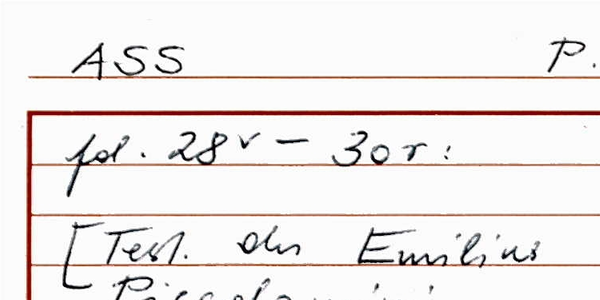 ASS P.
fol. 28v – 30r:
[Test. des Emilius
Piccolomini